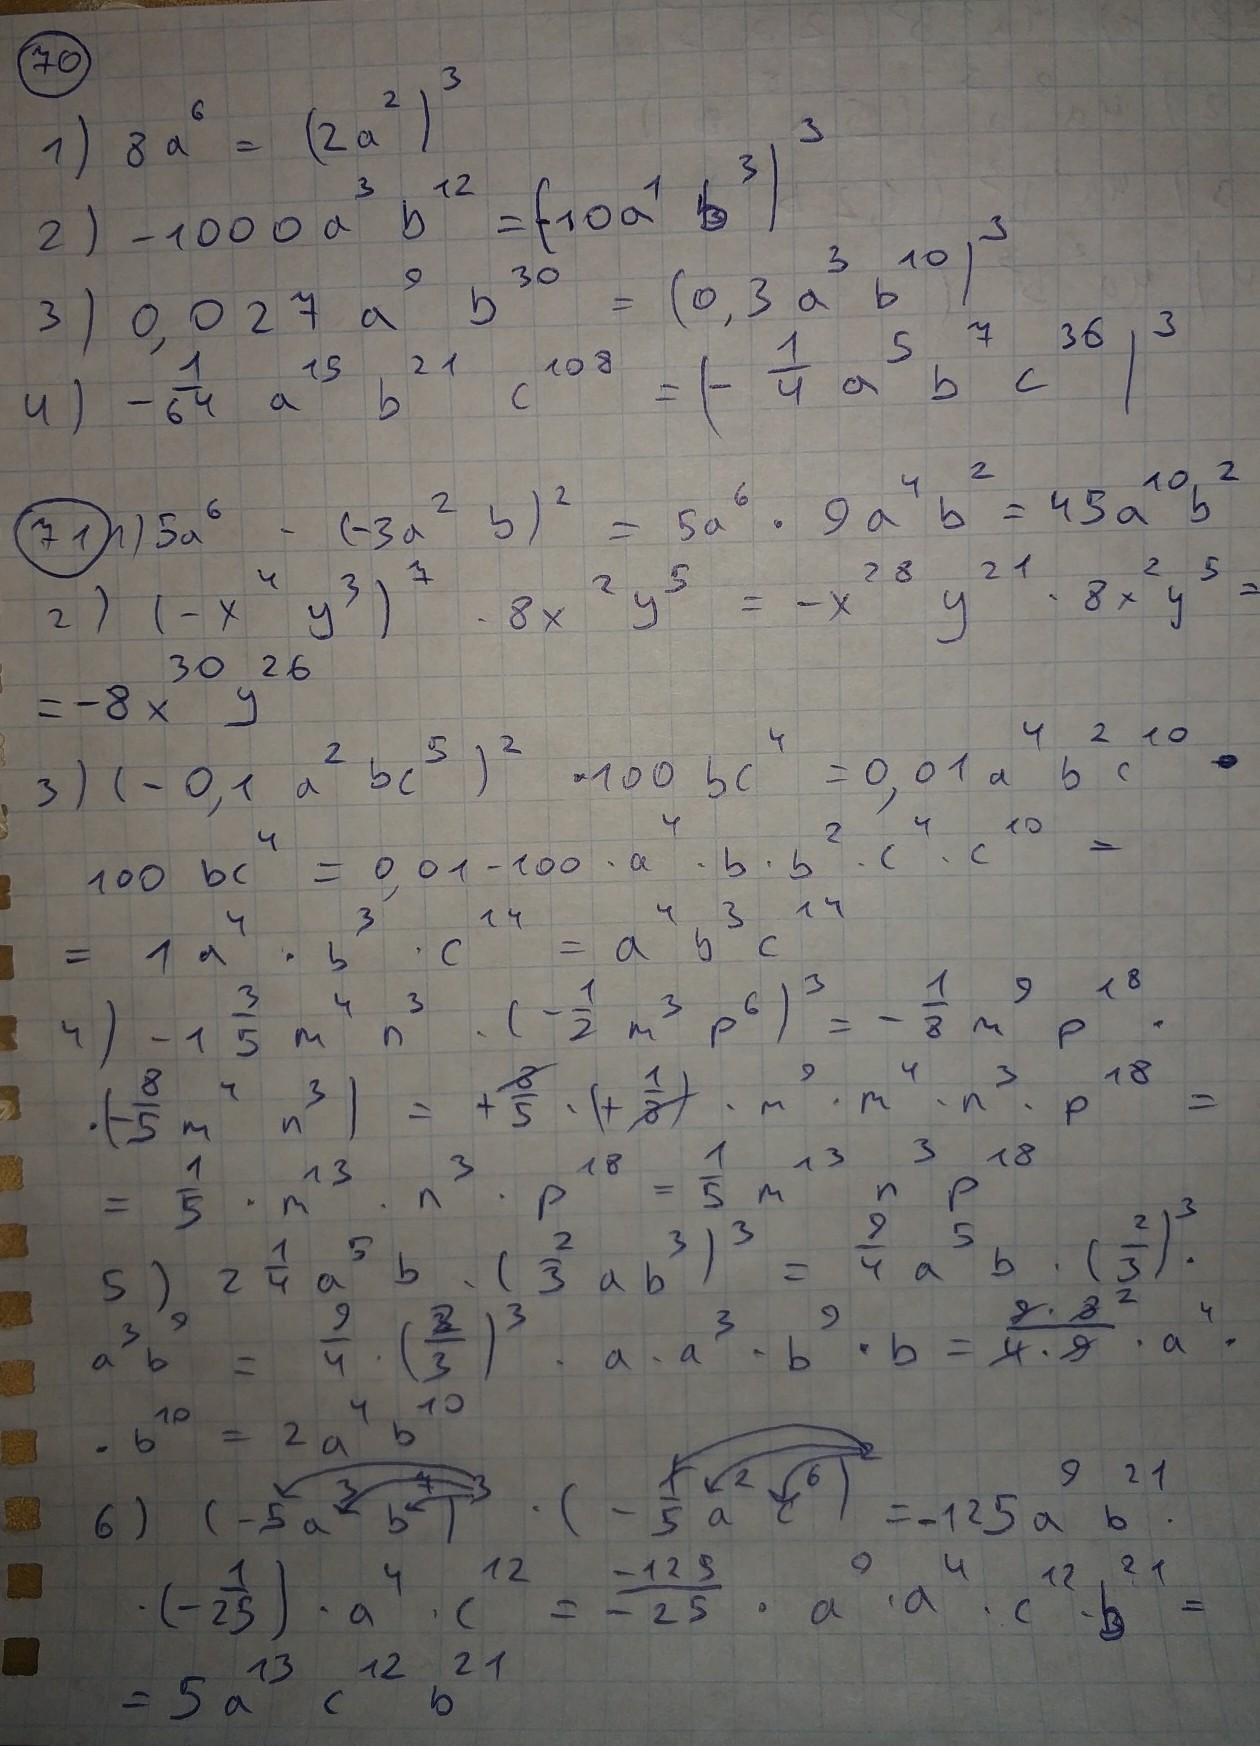 70
1) 8a^6 = (2a^2)^3
2) -1000a^3 b^12 = (-10a^1 b^3)^3
3) 0,027 a^9 b^30 = (0,3a^3 b^10)^3
4) -1/64 a^15 b^21 c^108 = (-1/4 a^5 b^7 c^36)^3
71 1) 5a^6 · (-3a^2 b)^2 = 5a^6 · 9a^4 b^2 = 45a^10 b^2
2) (-x^4 y^3)^7 · 8x^2 y^5 = -x^28 y^21 · 8x^2 y^5 =
= -8x^30 y^26
3) (-0,1 a^2 bc^5)^2 · 100 bc^4 = 0,01a^4 b^2 c^10 ·
100 bc^4 = 0,01 · 100 · a^4 · b · b^2 · c^4 · c^10 =
= 1a^4 · b^3 · c^14 = a^4 b^3 c^14
4) -1 3/5 m^4 n^3 · (-1/2 m^3 p^6)^3 = -1/8 m^9 p^18 ·
· (-8/5 m^4 n^3) = +8/5 · (+1/8) · m^9 · m^4 · n^3 · p^18 =
= 1/5 · m^13 · n^3 · p^18 = 1/5 m^13 n^3 p^18
5) 2 1/4 a^5 b · (2/3 ab^3)^3 = 9/4 a^5 b · (2/3)^3 ·
a^3 b^9 = 9/4 · (2/3)^3 · a · a^3 · b^9 · b = 9·8^2/4·9 · a^4 ·
· b^10 = 2a^4 b^10
6) (-5a^3 b^7)^3 · (-1/5 a^2 c^6)^2 = -125a^9 b^21 ·
· (-1/25) · a^4 · c^12 = -125/-25 · a^9 · a^4 · c^12 · b^21 =
= 5a^13 c^12 b^21